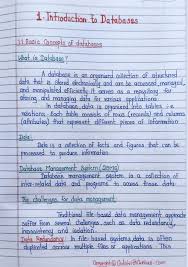 1. Introduction to Databases
1.1 Basic Concepts of databases
What is Database?
A database is an organized collection of structured
data that is stored electronically and can be accessed, managed,
and manipulated efficiently. It serves as a repository for
storing, and managing data for various applications
In database, data is organized into tables or
relations. Each table consists of rows (records) and columns
(attributes) that represent different pieces of information
Data:
Data is a collection of facts and figures that can be
processed to produce information
Database Management System (DBMS)
Database management system is a collection of
inter-related data and programs to access those data.
The challenges for data management
Traditional file-based data management approach
suffer from several challenges, such as data redundancy,
inconsistency and isolation.
Data Redundancy: In file based systems, data is often
duplicated across multiple files or applications. This